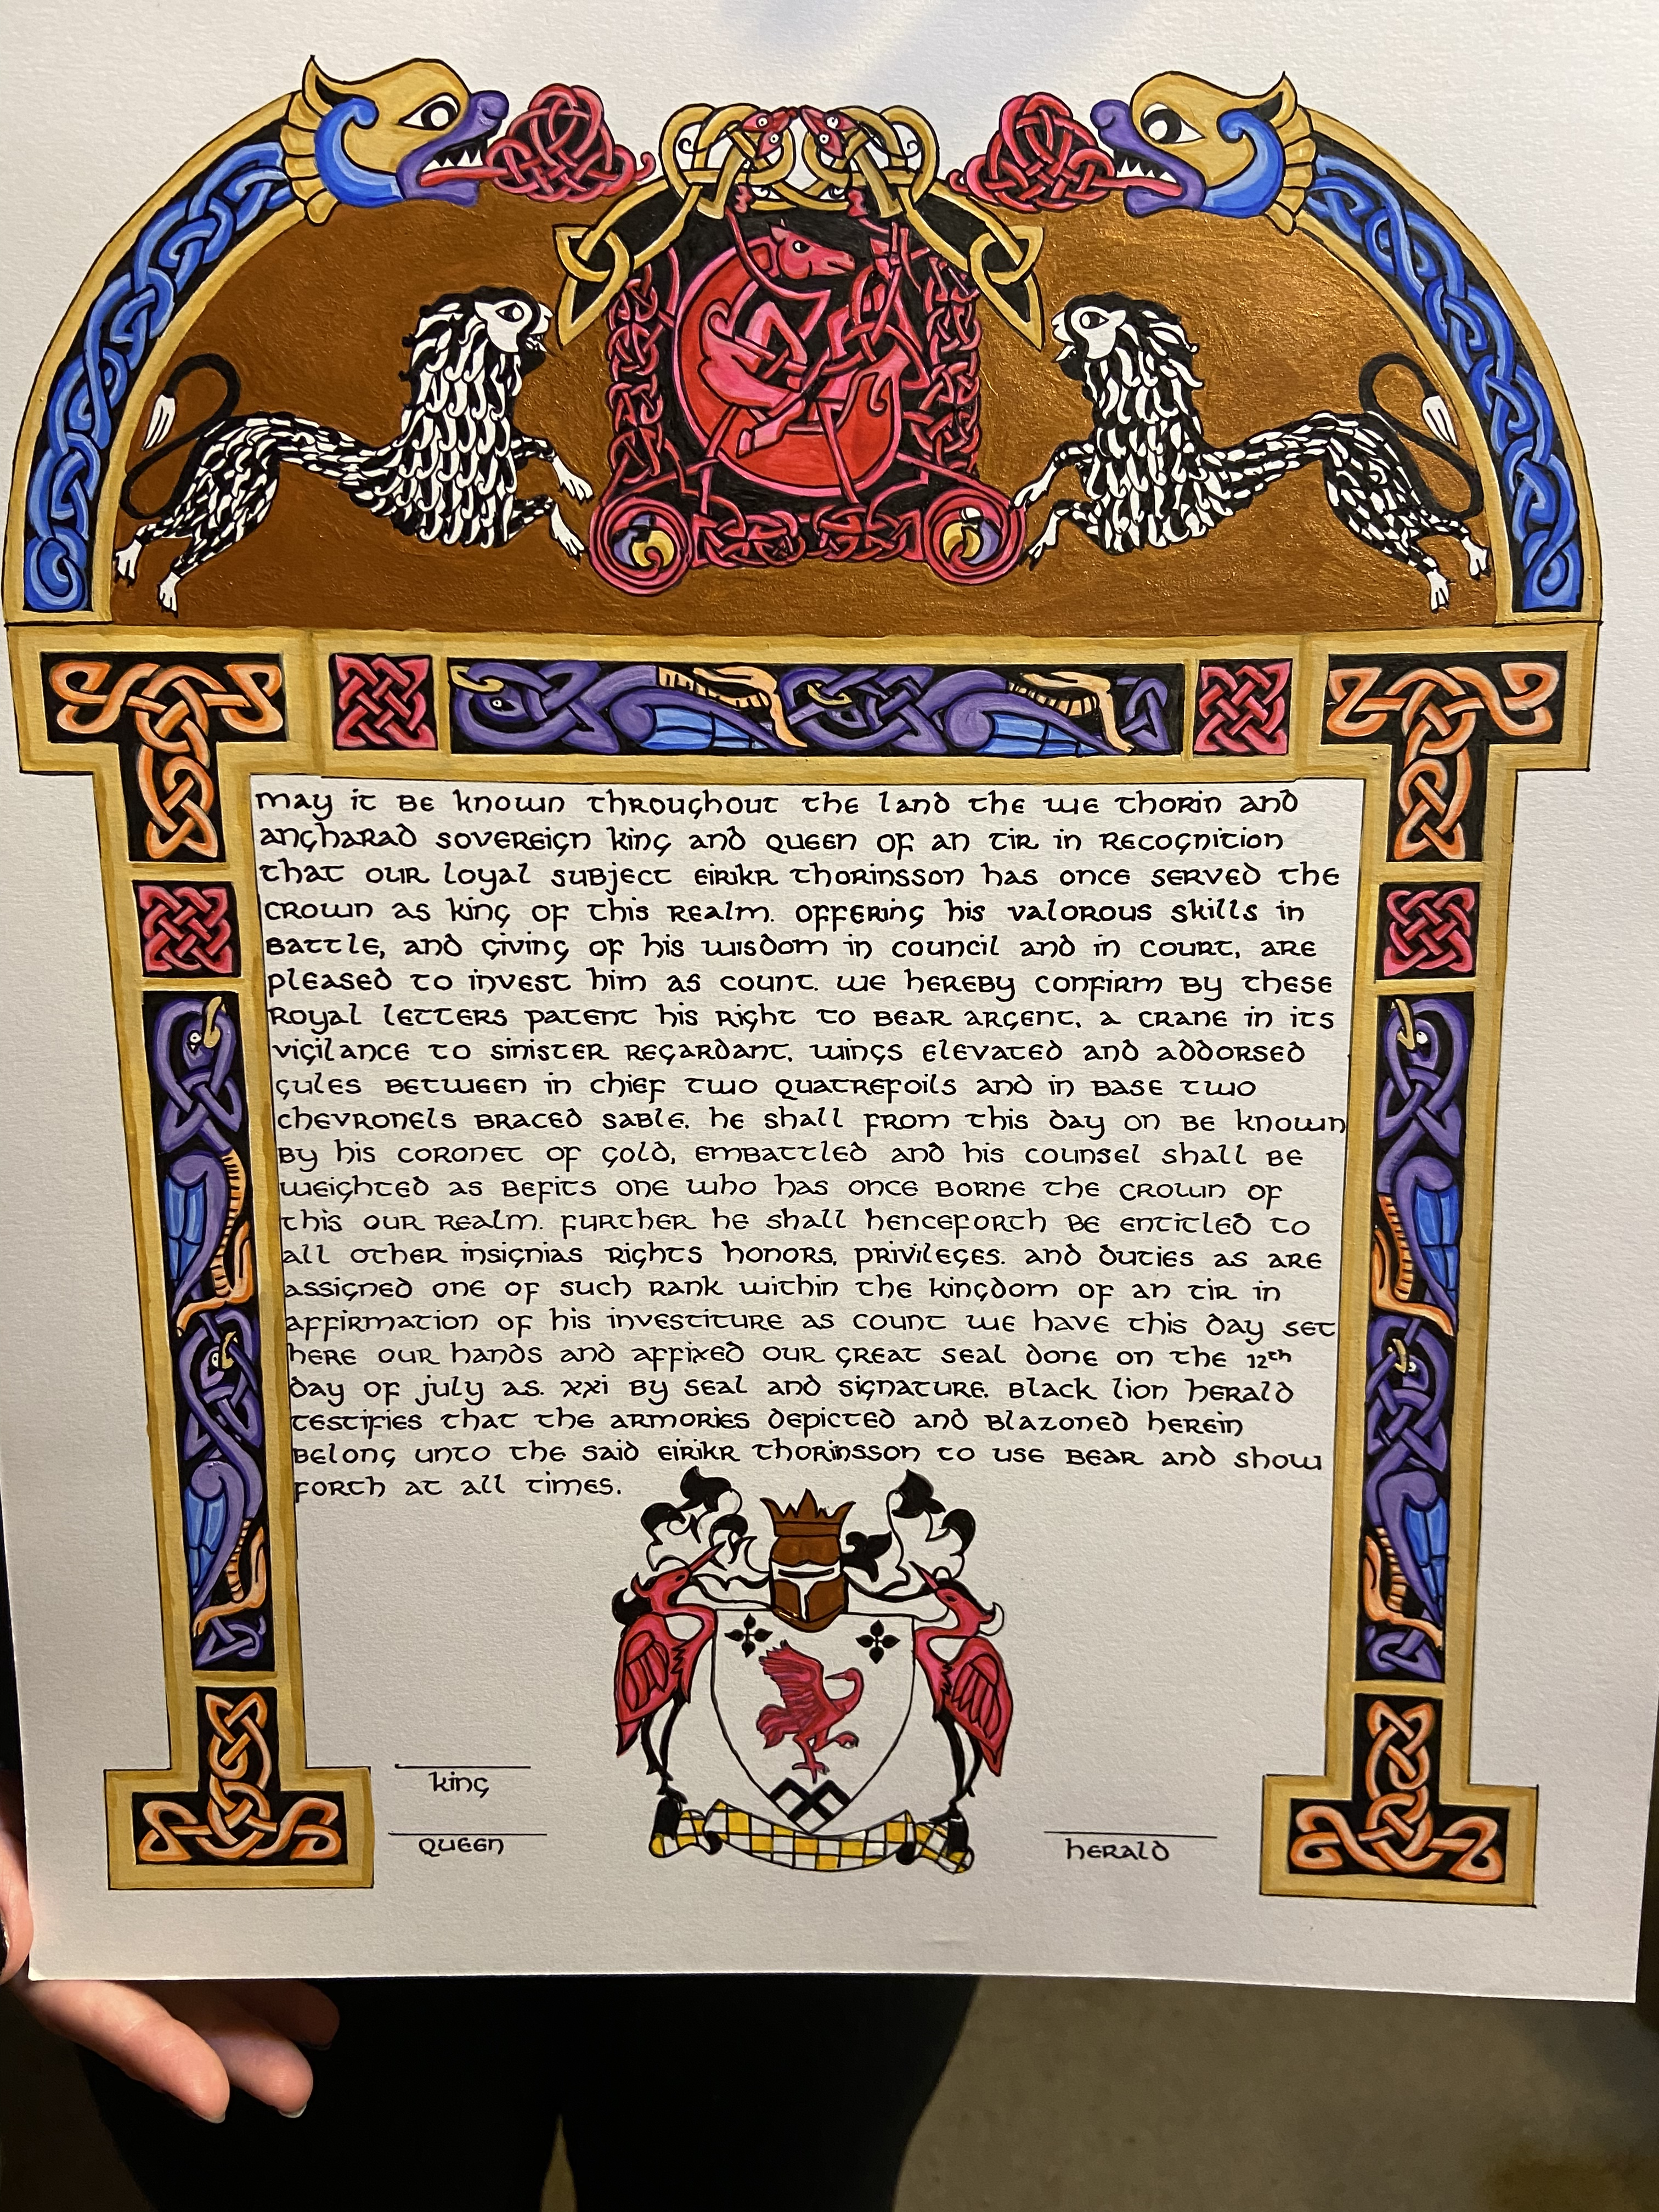 may it be known throughout the land the we thorin and
angharad sovereign king and queen of an tir in recognition
that our loyal subject eirikr thorinsson has once served the
crown as king of this realm. offering his valorous skills in
battle, and giving of his wisdom in council and in court, are
pleased to invest him as count. we hereby confirm by these
royal letters patent his right to bear argent, a crane in its
vigilance to sinister regardant, wings elevated and addorsed
gules between in chief two quatrefoils and in base two
chevronels braced sable. he shall from this day on be known
by his coronet of gold, embattled and his counsel shall be
weighted as befits one who has once borne the crown of
this our realm. further he shall henceforth be entitled to
all other insignias rights honors, privileges. and duties as are
assigned one of such rank within the kingdom of an tir in
affirmation of his investiture as count we have this day set
here our hands and affixed our great seal done on the 12th
day of july as. xxi by seal and signature. black lion herald
testifies that the armories depicted and blazoned herein
belong unto the said eirikr thorinsson to use bear and show
forth at all times.
king
queen
herald